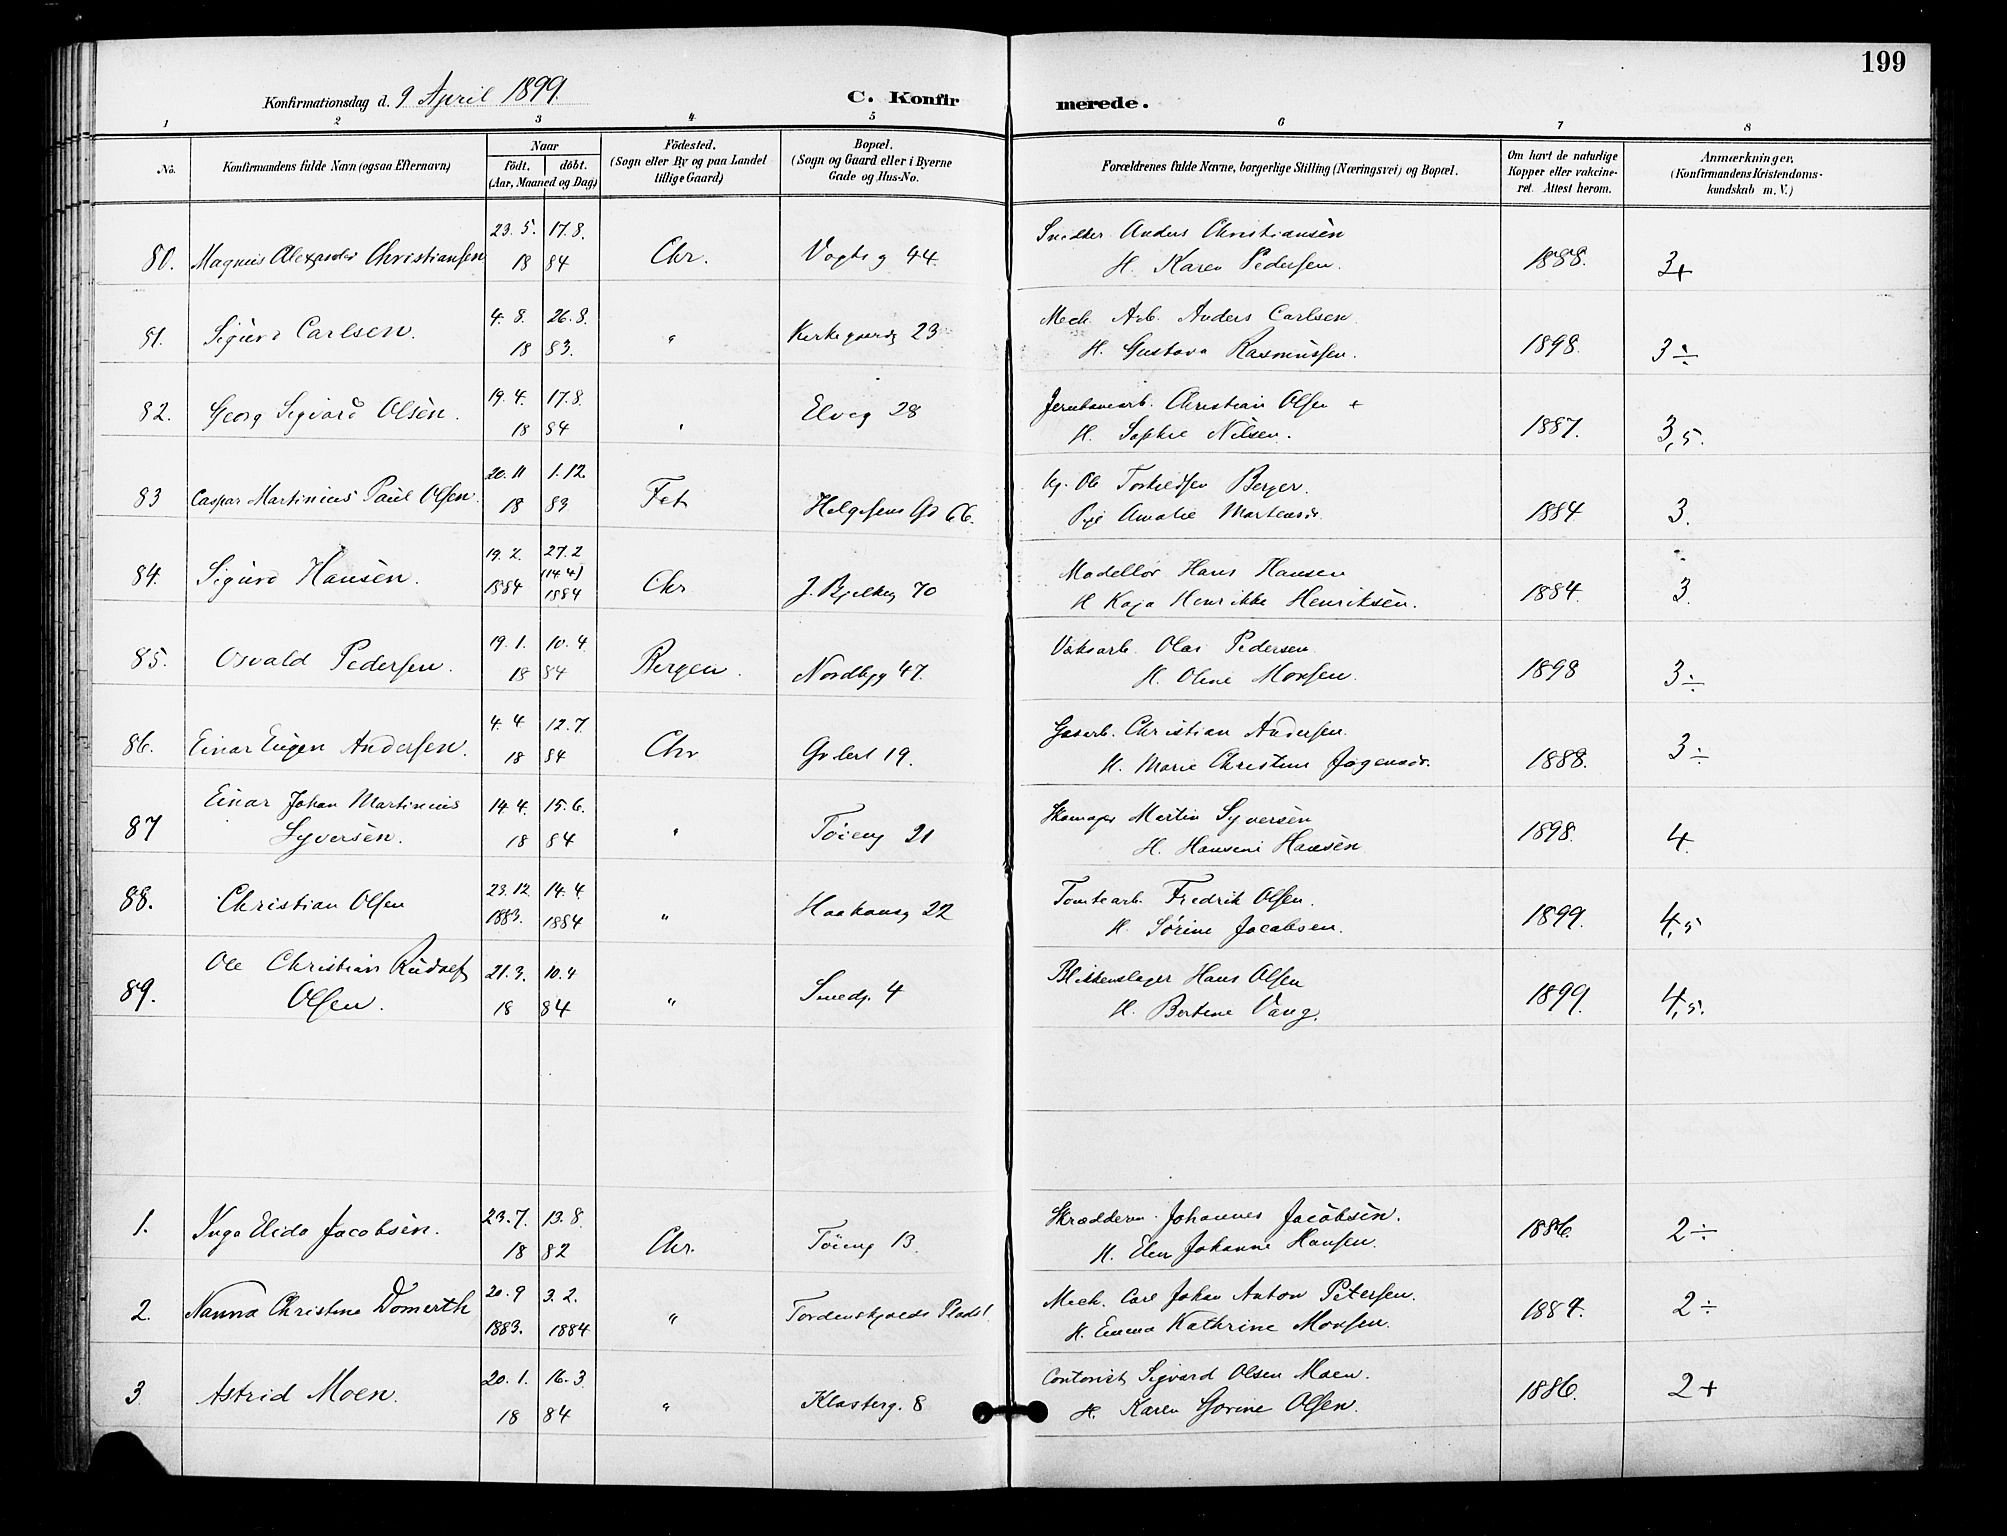 199
Konfirmationsdag d. 9 April 1899.
C. Konfirmerede.
1 2 3 4 5 6 7 8
No.
Konfirmandens fulde Navn (ogsaa Efternavn)
Naar
födt. döbt.
(Aar, Maaned og Dag)
Födested.
(Sogn eller By og paa Landet
tillige Gaard)
Bopæl.
(Sogn og Gaard eller i Byerne
Gade og Hus-No.
Forældrenes fulde Navne, borgerlige Stilling (Næringsvei) og Bopæl.
Om havt de naturlige
Kopper eller vakcine-
ret. Attest herom.
Anmærkninger,
(Konfirmandens Kristendoms-
kundskab m. V.)
23. 5. 17. 8. Snedker Anders Christiansen
80. Magnus Alexander Christiansen 18 84 Chr. Vogtsg 44. H. Karen Pedersen. 1888. 3+
4. 8. 26. 8. Mech. Arb. Anders Carlsen
81. Sigurd Carlsen. 18 83. " Kirkegaardsg 23 H. Gustava Rasmussen. 1898. 3÷
19. 4. 17. 8. Jernbanearb. Christian Olsen +
82. Georg Sigvard Olsen. 18 84 " Elveg 28 H. Sophie Nilsen. 1887. 3,5.
20. 11 1. 12. Ug. Ole Torkildsen Berger.
83 Caspar Martinius Paul Olsen. 18 83 Fet Helgesens Gd 66. Pige Amalie 1884 3.
19. 2. 27. 2 (14. 4) Modellör Hans Hansen
84. Sigurd Hansen. 1884 1884 Chr J. Bjelkesg 70 H Kaja Henrikke Henriksen. 1884. 3.
19. 1. 10. 4. Olai Pedersen
85. Osvald Pedersen. 18 84 Bergen. Nordbyg 47. H. Oline Monsen. 1898 3÷
4. 4 12. 7. Gasarb. Christian Andersen.
86. Einar Eugen Andersen. 18 84 Chr 19. H. Marie Christine 1888. 3÷
Einar Johan Martinius 14. 4. 15. 6. Skomager Martin Syversen
87 Syversen. 18 84 " Töieng 21 H. Hansine Hansen 1898. 4.
23. 12. 14. 4. Tomtearb. Fredrik Olsen.
88. Christian Olsen 1883. 1884 " Haakonsg 22 H. Sörine Jacobsen. 1899. 4,5
Ole Christian Rudolf 21. 3. 10. 4 Blikkenslager Hans Olsen
89. Olsen. 18 84 " Smedg. 4 H. Bertine Vang. 1899. 4,5.
23. 7. 13. 8. Skrædderm. Johannes Jacobsen.
1. Inga Elida Jacobsen. 18 82 Chr. Töieng 13. H. Elen Johanne Hansen. 1886. 2÷
20. 9 3. 2. Mech. Carl Johan Anton Petersen.
2. Nanna Christine Domerth 1883. 1884 " Tordenskjolds Plads 1. H. Emma Kathrine Monsen. 1884. 2÷
20. 1. 16. 3 Contorist Sigvard Olsen Moen.
3. Astrid Moen. 18 84 " Klosterg. 8 H. Karen Gorine Olsen. 1886. 2+